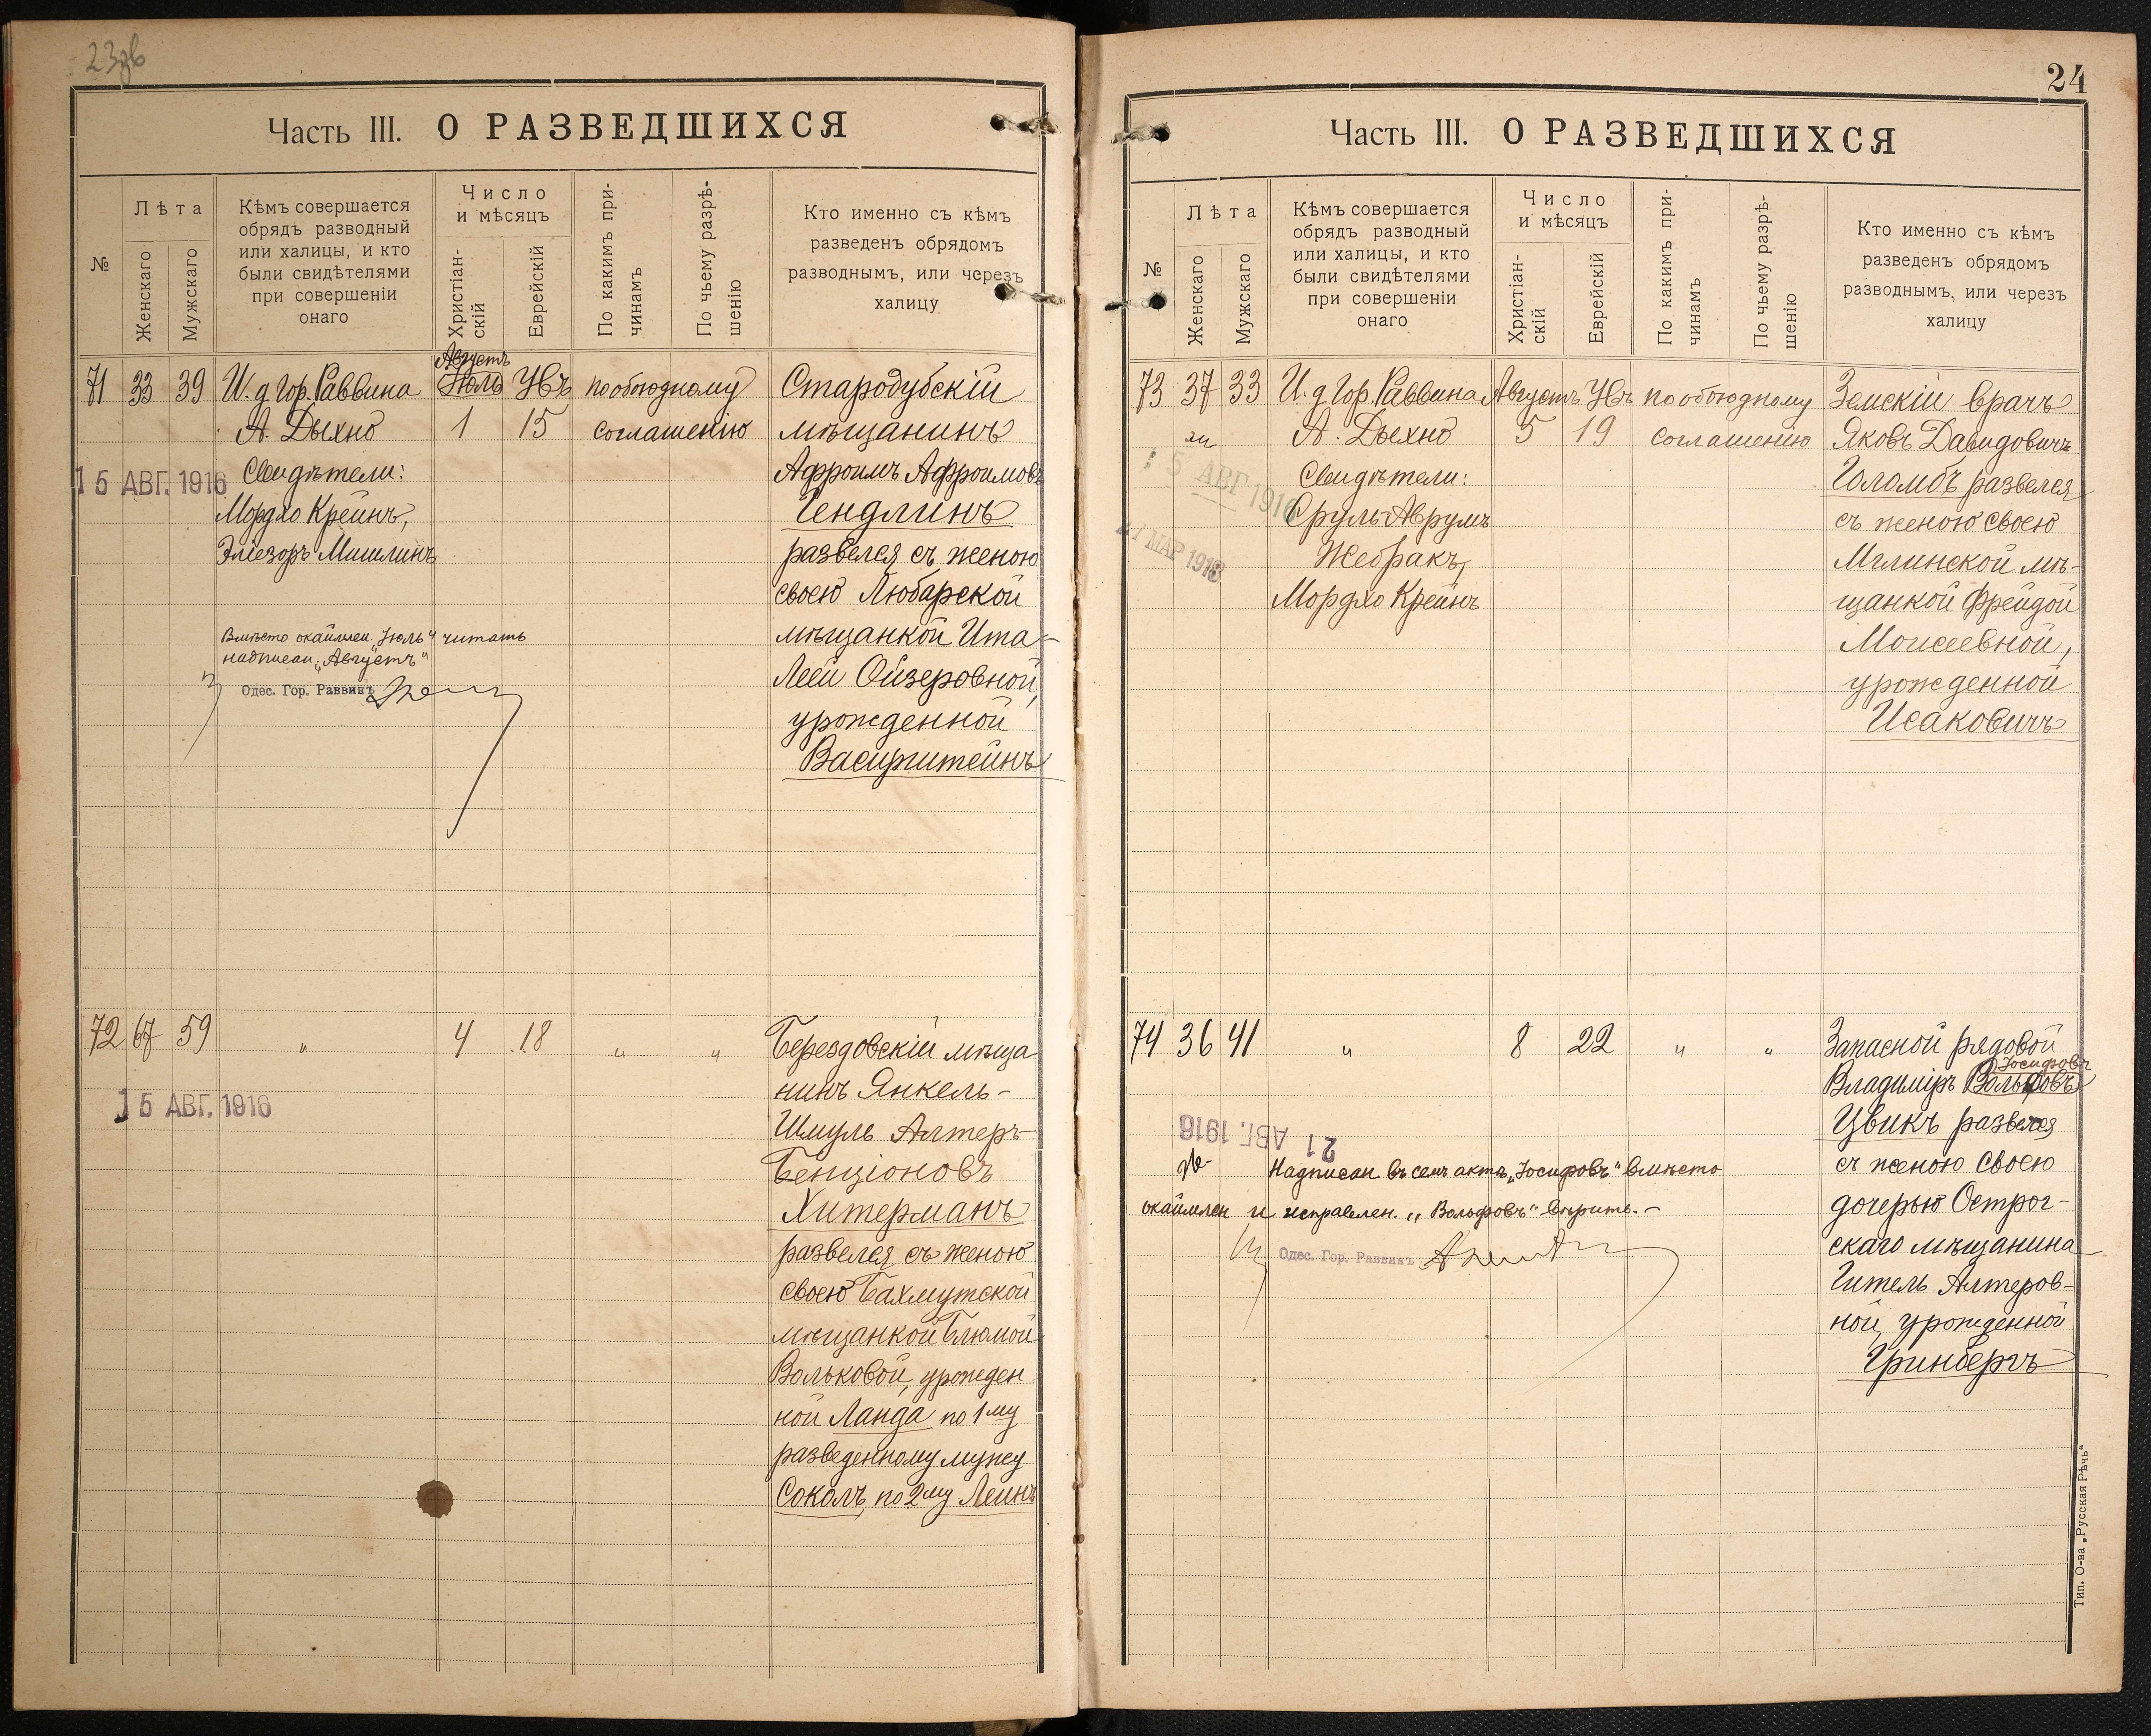 23об
Часть III. О РАЗВЕДШИХСЯ
№
Лѣта
Женскаго
Мужскаго
Кѣмъ совершается
обрядъ разводный
или халицы, и кто
были свидѣтелями
при совершеніи
онаго
Число
и мѣсяцъ
Христіан-
скій
Еврейскій
По какимъ при-
чинамъ
По чьему разрѣ-
шенію
Кто именно съ кѣмъ
разведенъ обрядомъ
разводнымъ, или черезъ
халицу
Августъ
71 33 39 И. д Гор. Раввина Июль Увъ по обоюдному Стародубскій
А. Дыхно 1 15 соглашенію мѣщанинъ
15 АВГ. 1916 Свидѣтели: Афроимъ Афроимовъ
Мордхо Крейнъ, Гендлинъ
Эліезоръ Мишлинъ развелся съ женою
своею Любарской
Вмѣсто окаймлен. "Июль" читать мѣщанкой Ита-
надписан. "Августъ" Леей Ойзеровной,
Одес. Гор. Раввинъ
урожденной
Васиршейнъ
72 67 59 " 4 18 " " Берездовскій мѣща-
нинъ Янкель-
15 АВГ. 1916 Шмуль Алтеръ-
Бенціоновъ
Хитерманъ
развелся съ женою
своею Бахмутской
мѣщанкой Блюмой
Вольковой, урожден
ной Ланда по 1му
разведенному мужу
Соколъ, по 2му Леинъ
24
Часть III. О РАЗВЕДШИХСЯ
№
Лѣта
Женскаго
Мужскаго
Кѣмъ совершается
обрядъ разводный
или халицы, и кто
были свидѣтелями
при совершеніи
онаго
Число
и мѣсяцъ
Христіан-
скій
Еврейскій
По какимъ при-
чинамъ
По чьему разрѣ-
шенію
Кто именно съ кѣмъ
разведенъ обрядомъ
разводнымъ, или черезъ
халицу
73 37 33 И. д Гор. Раввина Августъ Увъ по обоюдному Земскій врачъ
А. Дыхно 5 19 соглашенію Яковъ Давидовичъ
15 АВГ 1916 Свидѣтели: Голомбъ развелся
Сруль-Аврумъ съ женою своею
МАР 1918 Жебракъ, Мглинской мѣ-
Мордхо Крейнъ щанкой Фрейдой
Моисеевной,
урожденной
Исаковичъ
74 36 41 " 8 22 " " Запасной рядовой
Іосифовъ
Владиміръ Вольфовъ
Цвикъ развелся
21 АВГ. 1916
Надписан. въ семъ актѣ "Іосифовъ" вмѣсто съ женою своею
окаймлен и исправлен. "Вольфовъ" вѣрить. - дочерью Острог-
Одес. Гор. Раввинъ скаго мѣщанина
Гитель Алтеров-
ной, урожденной
Гринбергъ
Тип. О-ва „Русская Рѣчь“